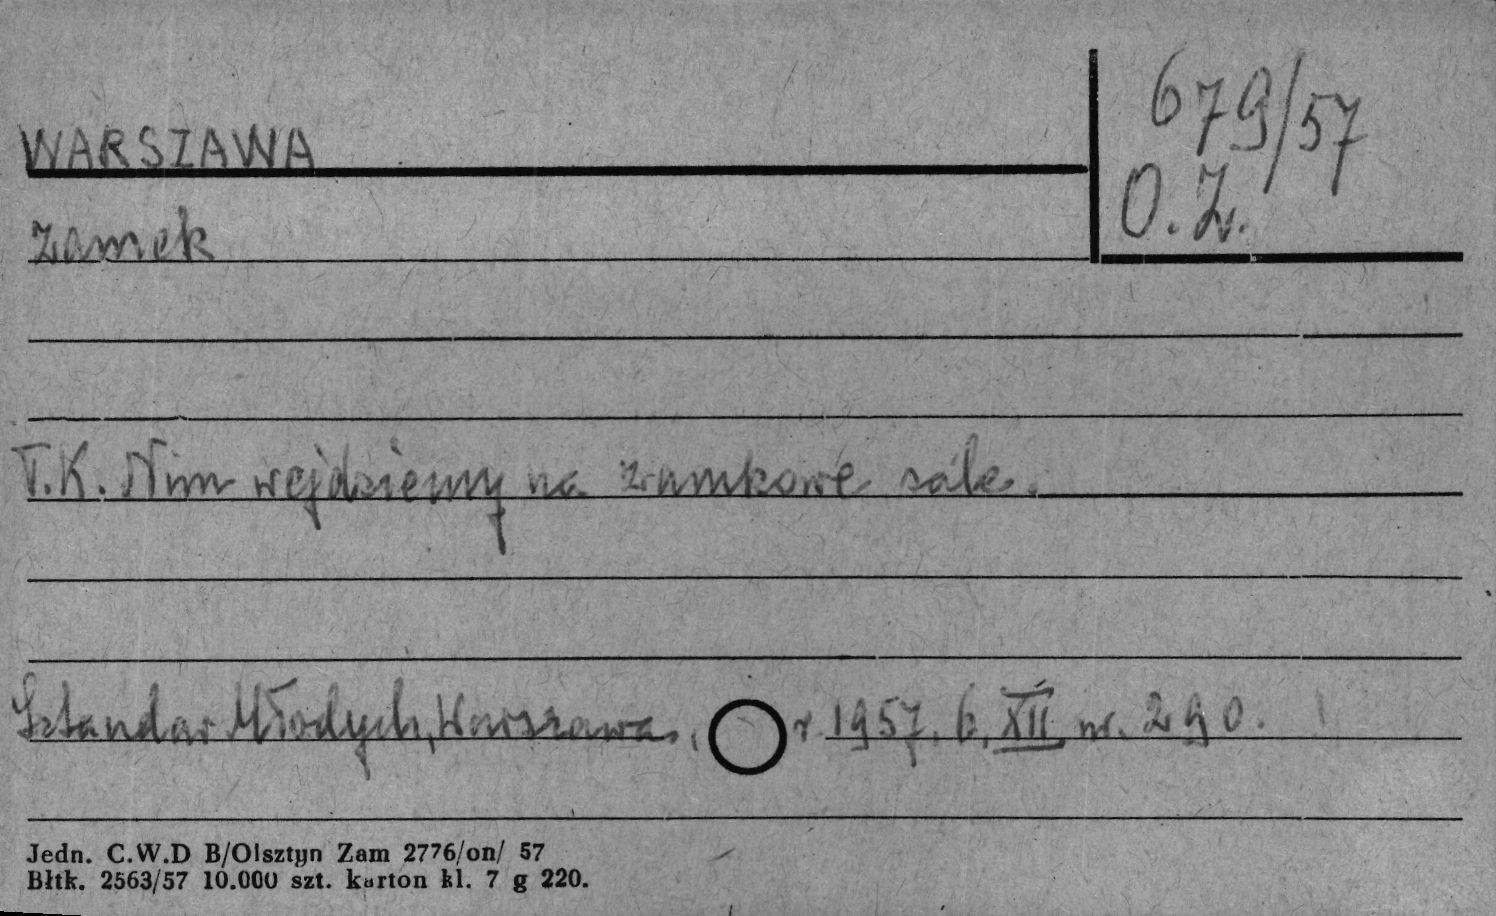 679/57
WARSZAWA
O.Z.
zamek
T.K. Nim wejdziemy na zamkowe sale.
Sztandar Młodych, Warszawa, r. 1957. 6. XII nr. 290.
Jedn. C.W.D B/Olsztyn Zam 2776/on/ 57
Błtk. 2563/57 10.000 szt. karton kl. 7 g 220.